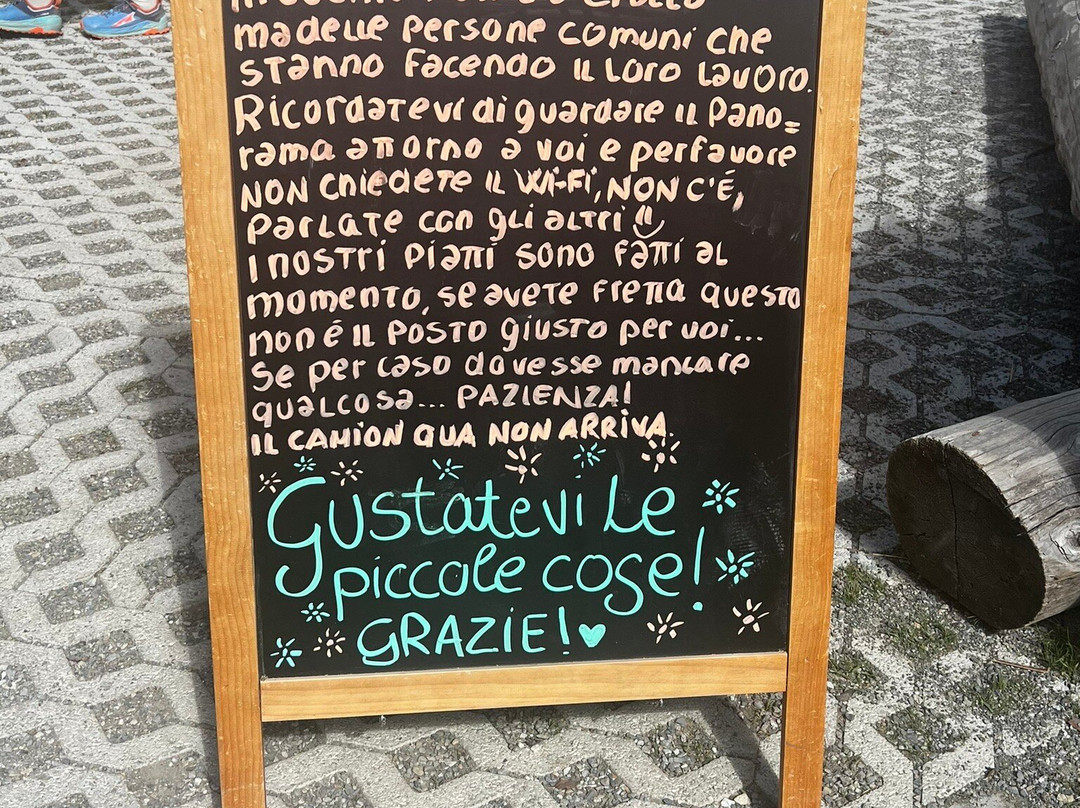 madelle persone comuni che
stanno facendo il loro lavoro.
Ricordatevi di guardare il pano=
rama attorno a voi e perfavore
NON chiedete il Wi-Fi, NON C'É,
parlate con gli altri
I nostri piatti sono fatti al
momento, se avete fretta questo
non é il posto giusto per voi...
Se per caso dovesse mancare
qualcosa... PAZIENZA!
IL CAMION QUA NON ARRIVA.
Gustatevi Le
piccole cose!
GRAZIE!